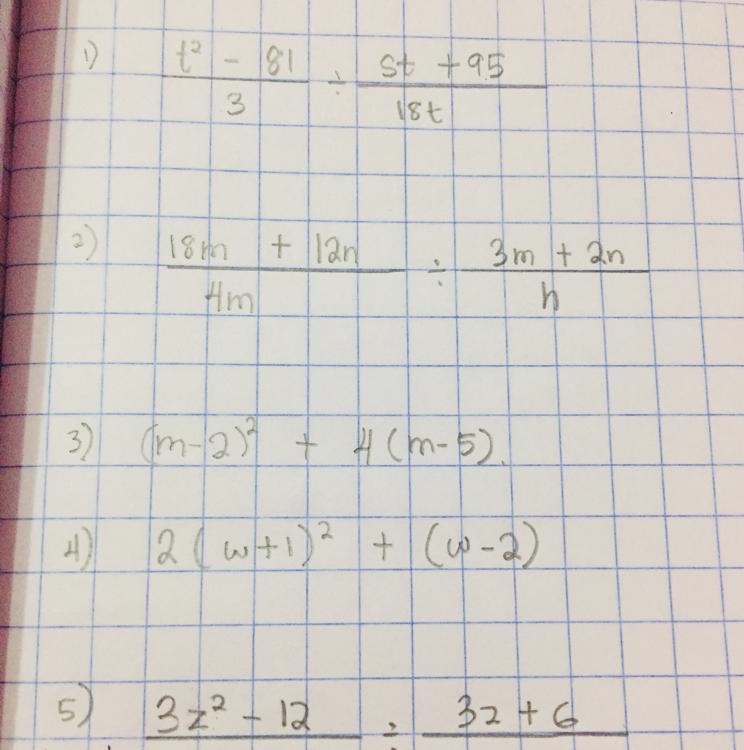 1) t² - 81 ÷ st + 95
3 18t
2) 18m + 12n ÷ 3m + 2n
4m n
3) (m-2)² + 4(m-5).
4) 2(w+1)² + (w-2)
5) 3z² - 12 ÷ 3z + 6